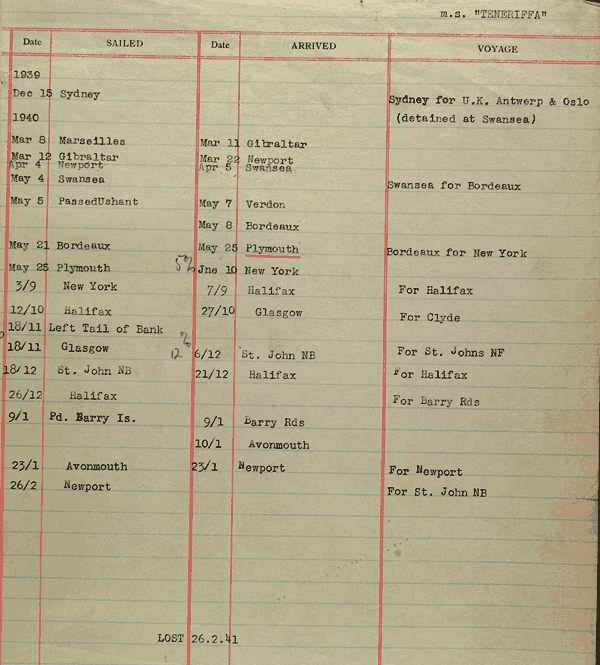 m.s. "TENERIFFA"
Date SAILED Date ARRIVED VOYAGE
1939
Dec 15 Sydney Sydney for U.K. Antwerp & Oslo
1940 (detained at Swansea)
Mar 8 Marseilles Mar 11 Gibraltar
Mar 12 Gibraltar Mar 22 Newport
Apr 4 Newport Apr 5 Swansea
May 4 Swansea Swansea for Bordeaux
May 5 PassedUshant May 7 Verdon
May 8 Bordeaux
May 21 Bordeaux May 25 Plymouth Bordeaux for New York
May 25 Plymouth 5% Jne 10 New York
3/9 New York 7/9 Halifax For Halifax
12/10 Halifax 27/10 Glasgow For Clyde
18/11 Left Tail of Bank
18/11 Glasgow 6/12 St. John NB For St. Johns NF
18/12 St. John NB 21/12 Halifax For Halifax
26/12 Halifax For Barry Rds
9/1 Pd. Barry Is. 9/1 Barry Rds
10/1 Avonmouth
23/1 Avonmouth 23/1 Newport For Newport
26/2 Newport For St. John NB
LOST 26.2.41